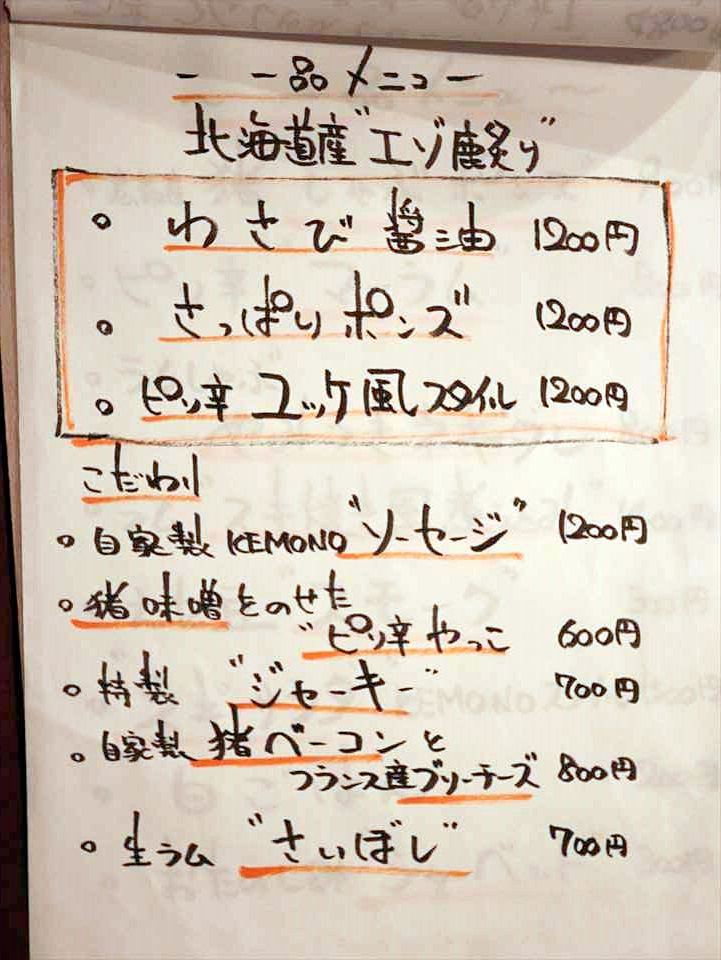 - 一品メニュー
北海道産"エゾ鹿炙り"
。わさび醤油 1200円
。さっぱりポンズ 1200円
。ピリ辛ユッケ風スタイル 1200円
こだわり
。自家製KEMONO"ソーセージ" 1200円
。猪味噌をのせた
"ピリ辛やっこ 600円
。特製 "ジャーキー" 700円
。自家製猪ベーコンと
フランス産ブリーチーズ 800円
。生ラム "さいぼし" 700円